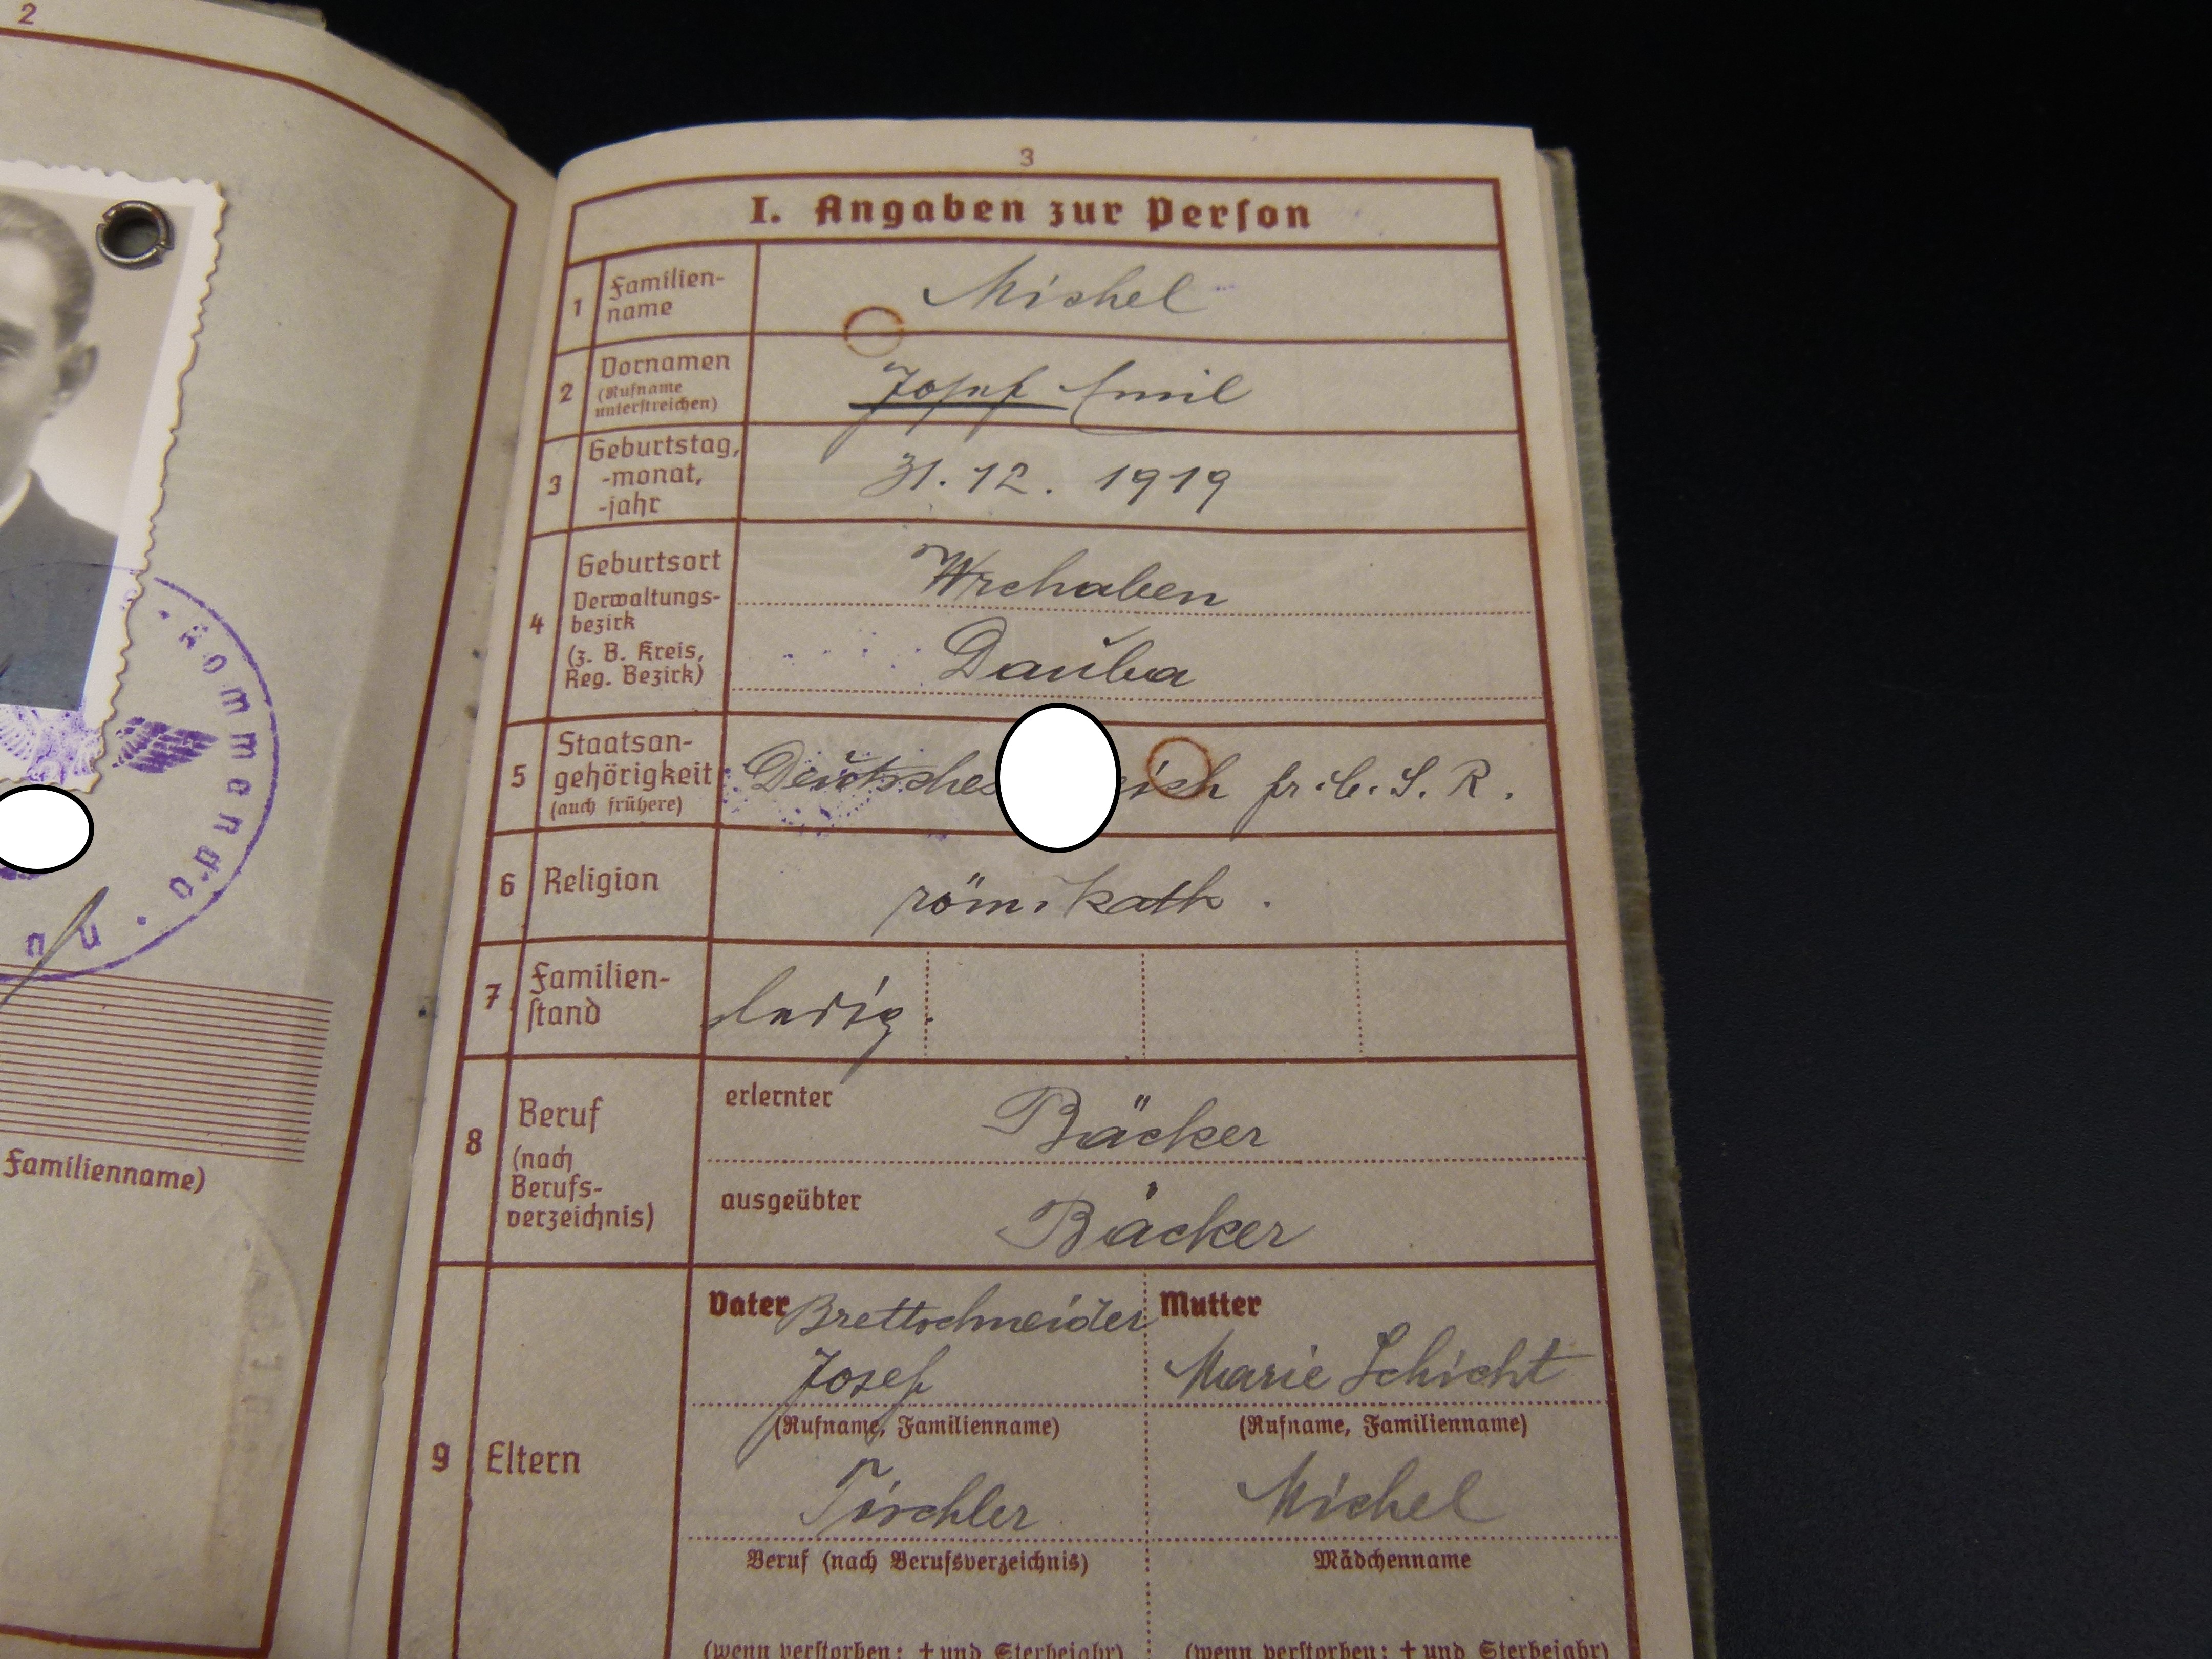 2
Kommando
au
Familienname)
3
I. Angaben zur Person
1 Familien-
name
Michel
2 Vornamen
(Rufname
unterstreichen)
Josef Emil
3 Geburtstag,
-monat,
-jahr
31. 12. 1919
4 Geburtsort
Verwaltungs-
bezirk
(z. B. Kreis,
Reg. Bezirk)
Wrchaben
Dauba
5 Staatsan-
gehörigkeit
(auch frühere)
Deutsches eich fr. Č. S. R.
6 Religion
röm. kath.
7 Familien-
stand
ledig.
8 Beruf
(nach
Berufs-
verzeichnis)
erlernter
Bäcker
ausgeübter
Bäcker
9 Eltern
Vater Brettschneider
Josef
(Rufname, Familienname)
Tischler
Beruf (nach Berufsverzeichnis)
(wenn verstorben: † und Sterbejahr)
Mutter
Marie Schicht
(Rufname, Familienname)
Michel
Mädchenname
(wenn verstorben: † und Sterbejahr)